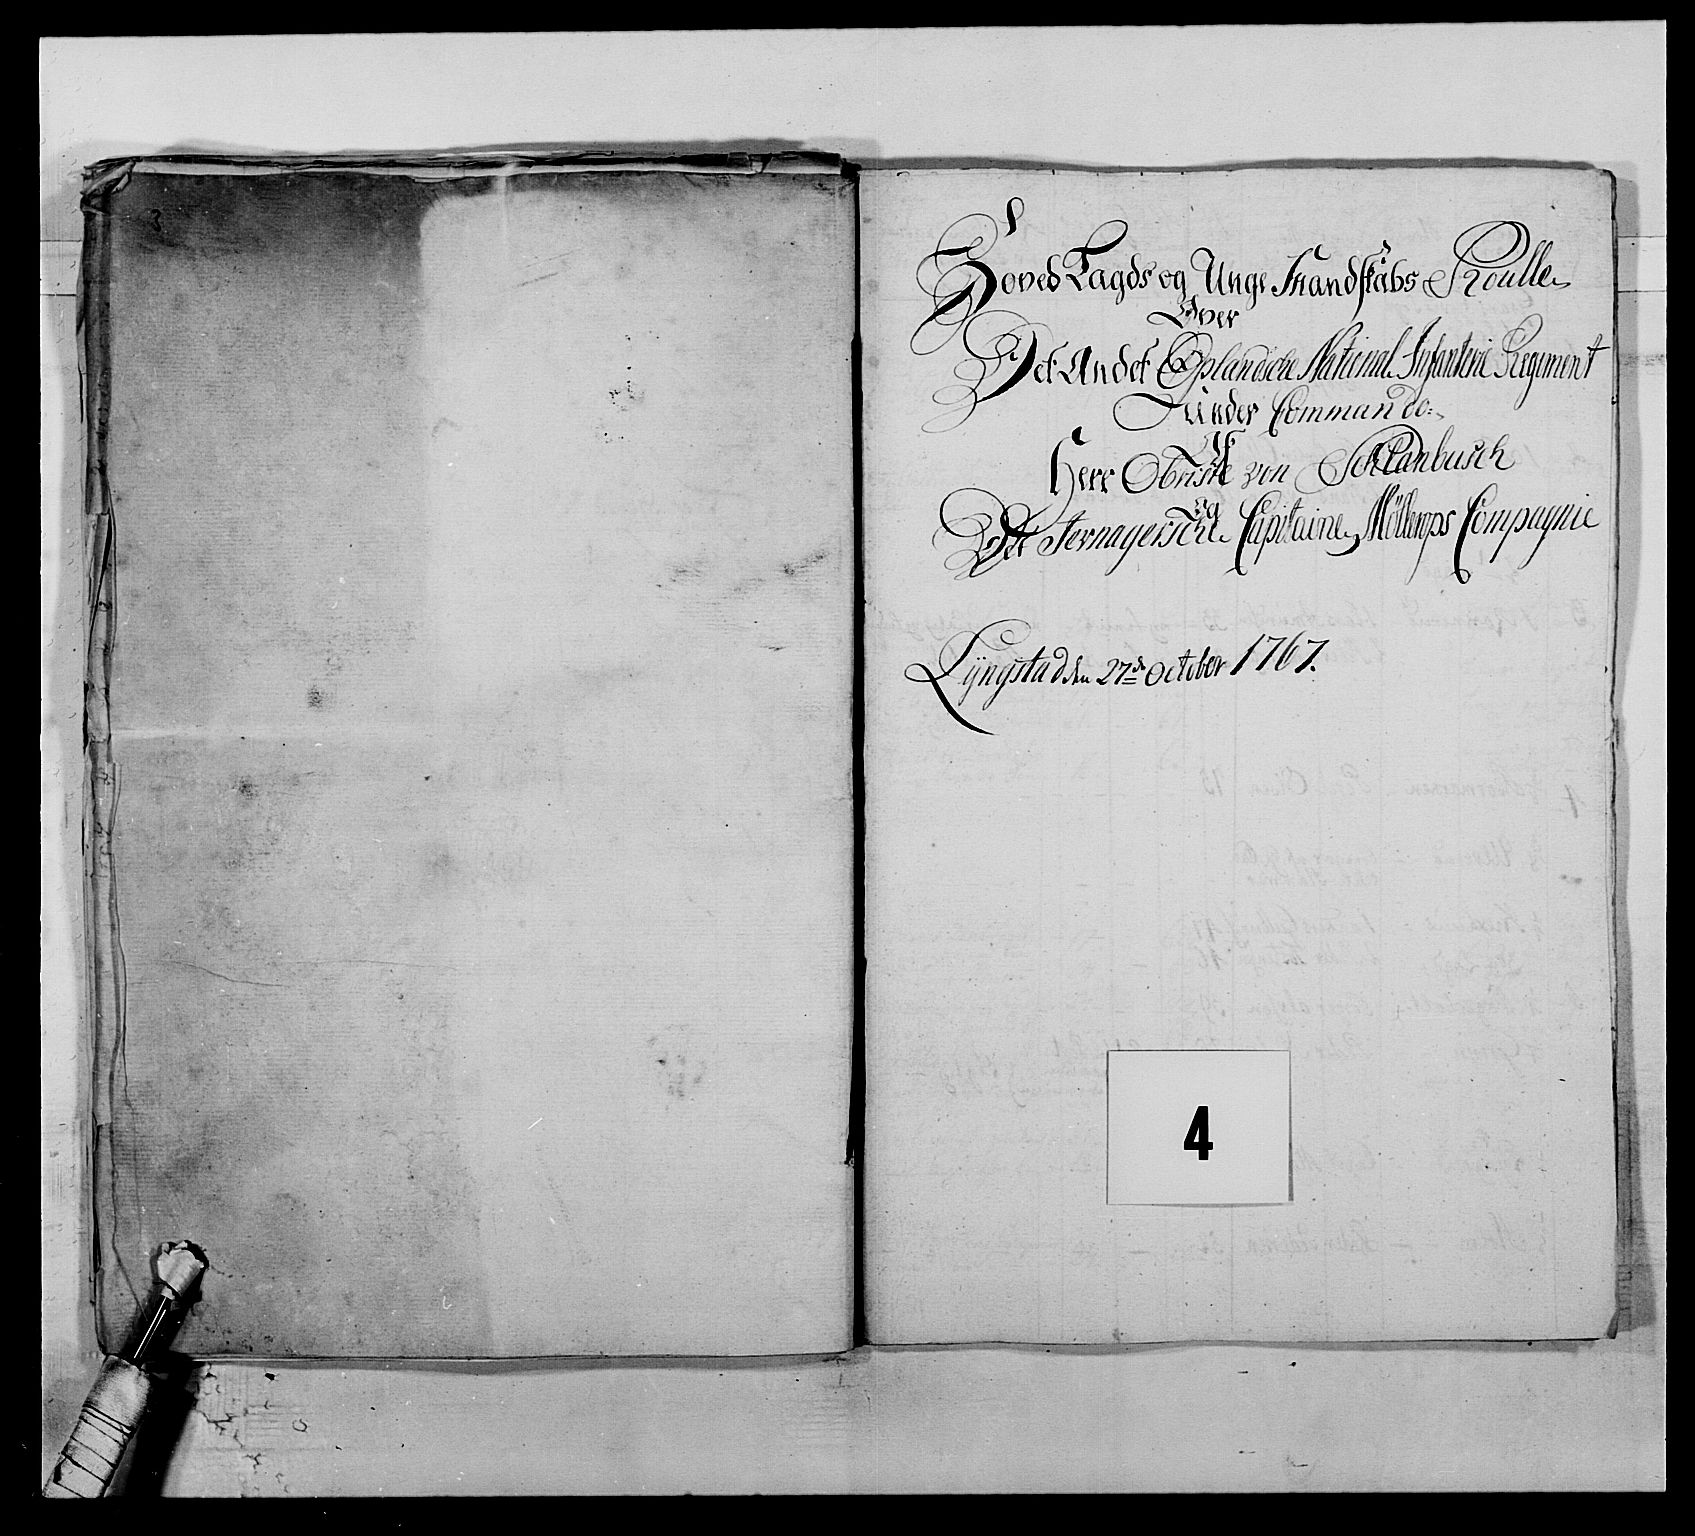 Hoved Lagds og Unge Mandskabs Roulle
Over
Det Andet Oplandsche National Infanterie Regiment
Under Commando
Af
Herr Obriste von Schlanbusch
Og
Det Jernagersche Capitaine Möllerops Compagnie
Lÿngstad den 27de October 1767.
4